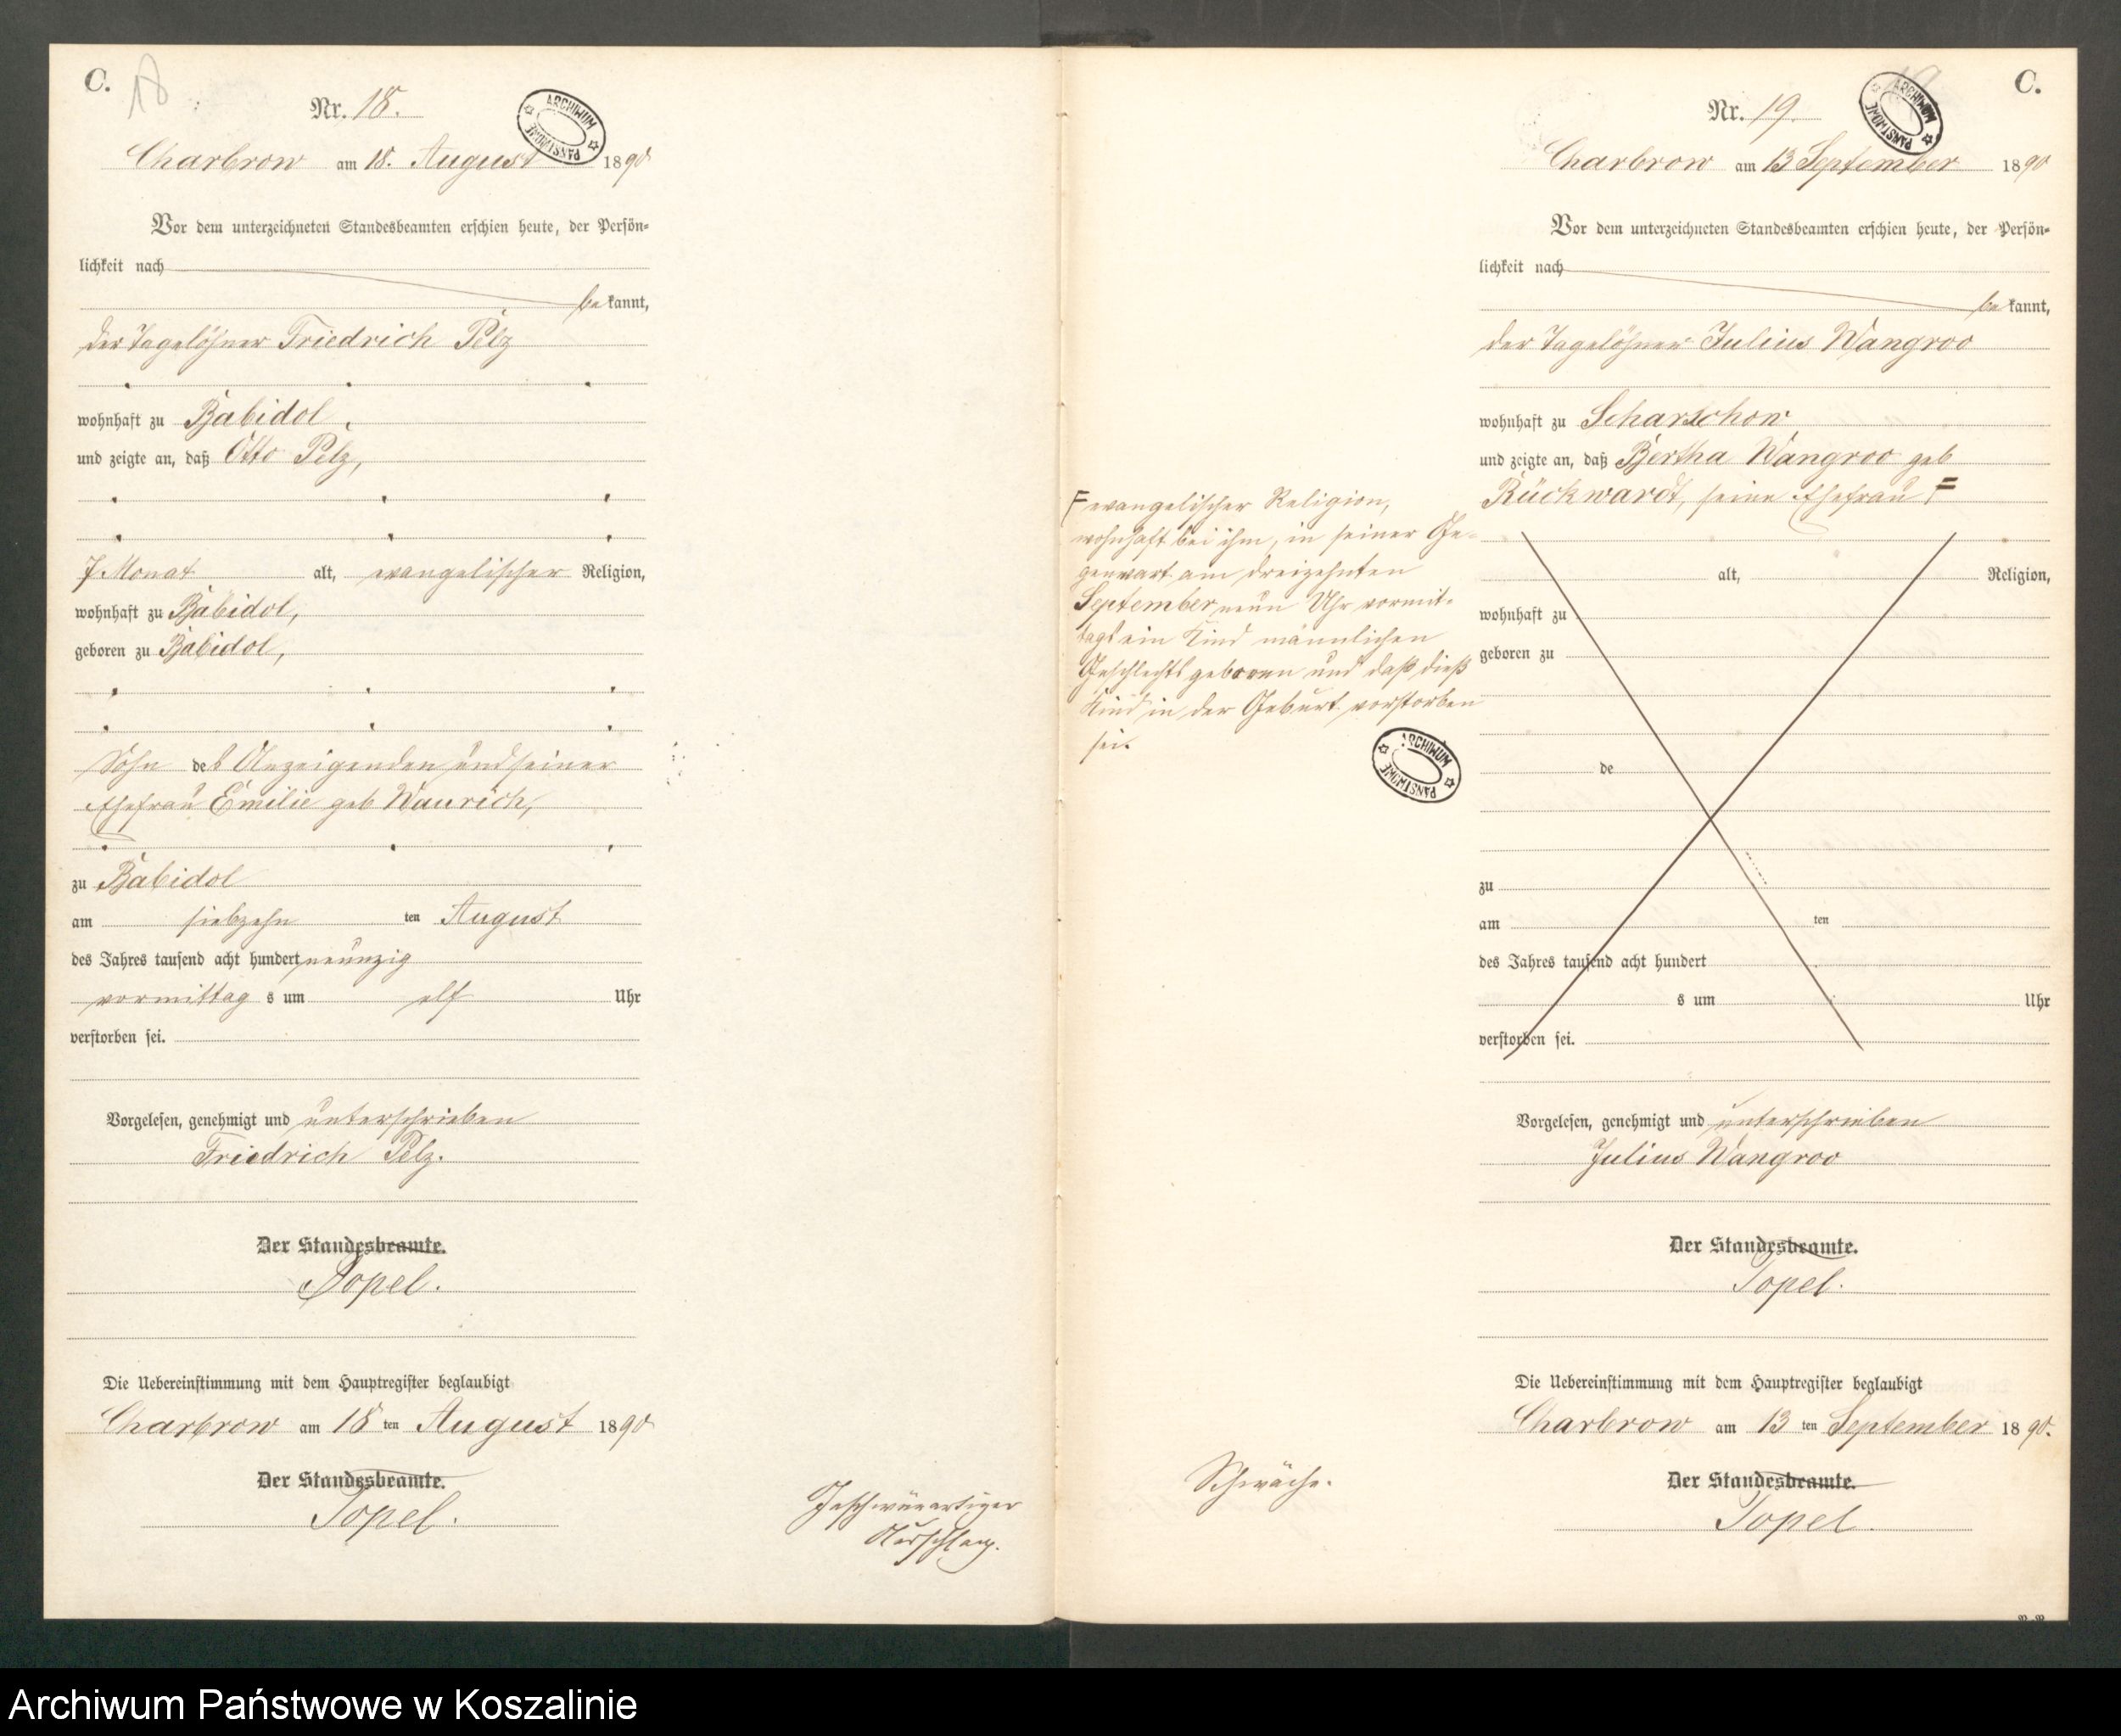 C.
18
Nr. 18.
ARCHIWUM PAŃSTWOWE
Charbrow am 18. August 1890
Vor dem unterzeichneten Standesbeamten erschien heute, der Persön-
lichkeit nach
be kannt,
der Tagelöhner Friedrich Pelz
wohnhaft zu Babidol,
und zeigte an, daß Otto Pelz,
7 Monat alt, evangelischer Religion,
wohnhaft zu Babidol,
geboren zu Babidol,
Sohn des Anzeigenden und seiner
Ehefrau Emilie geb Waurich,
zu Babidol
am siebzehn ten August
des Jahres tausend acht hundert neunzig
vormittag s um elf Uhr
verstorben sei.
Vorgelesen, genehmigt und unterschrieben
Friedrich Pelz.
Der Standesbeamte.
Topel.
Die Uebereinstimmung mit dem Hauptregister beglaubigt
Charbrow am 18 ten August 1890
Der Standesbeamte.
Topel.
Ausschlag.
C.
19
Nr. 19.
ARCHIWUM PAŃSTWOWE
Charbrow am 13 September 1890
Vor dem unterzeichneten Standesbeamten erschien heute, der Persön-
lichkeit nach
be kannt,
der Tagelöhner Julius Wangroo
wohnhaft zu Scharschow
und zeigte an, daß Bertha Wangroo geb
Rückwardt, seine Ehefrau F
F evangelischer Religion,
wohnhaft bei ihm, in seiner Ge-
genwart am dreizehnten
September neun Uhr vormit-
tags ein Kind männlichen
Geschlechts geboren und daß dieß
Kind in der Geburt verstorben
sei.
ARCHIWUM PAŃSTWOWE
alt, Religion,
wohnhaft zu
geboren zu
de
zu
am ten
des Jahres tausend acht hundert
s um Uhr
verstorben sei.
Vorgelesen, genehmigt und unterschrieben
Julius Wangroo
Der Standesbeamte.
Topel.
Die Uebereinstimmung mit dem Hauptregister beglaubigt
Charbrow am 13 ten September 1890.
Der Standesbeamte.
Topel.
Schwäche.
Archiwum Państwowe w Koszalinie